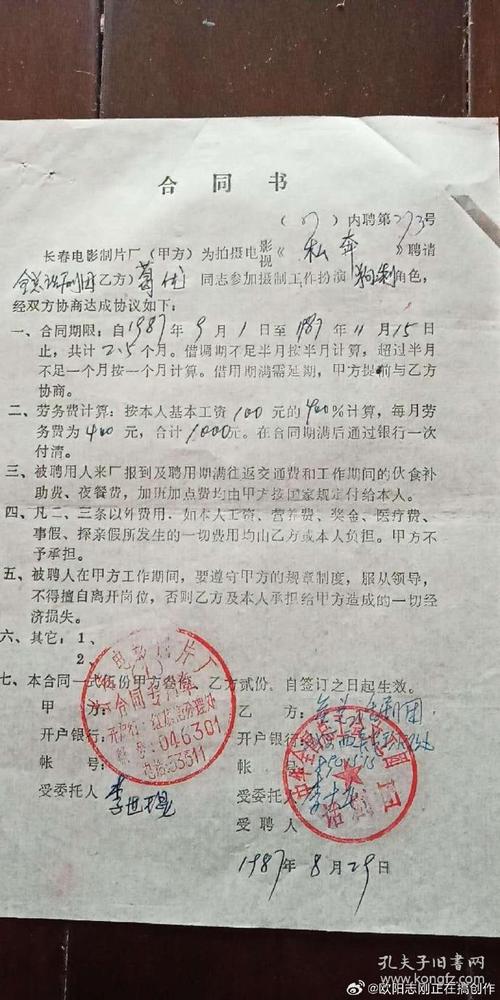 合同书
(87)内聘第273号
长春电影制片厂(甲方)为拍摄电影视《私奔》聘请
全总话剧团(乙方)葛优同志参加摄制工作扮演角色,
经双方协商达成协议如下:
一、合同期限:自1987年9月1日至1987年11月15日
止,共计2.5个月。借调期不足半月按半月计算,超过半月
不足一个月按一个月计算。借用期满需延期,甲方提前与乙方
协商。
二、劳务费计算:按本人基本工资100元的400%计算,每月劳
务费为400元,合计1000元。在合同期满后通过银行一次
付清。
三、被聘用人来厂报到及聘用期满往返交通费和工作期间的伙食补
助费、夜餐费,加班加点费均由甲方按国家规定付给本人。
四、凡二、三条以外费用.如本人工资、营养费、奖金、医疗费、
事假、探亲假所发生的一切费用均由乙方或本人负担。甲方不
予承担。
五、被聘人在甲方工作期间,要遵守甲方的规章制度,服从领导,
不得擅自离开岗位,否则乙方及本人承担给甲方造成的一切经
济损失。
六、其它:1、
2、
七、本合同一式伍份甲方叁份,乙方贰份,自签订之日起生效。
甲方:
乙方:全总话剧团
开户银行:
开户银行:
帐号:
帐号:
受委托人
受委托人
受聘人
1987年8月29日
电影制片厂
合同专用章
046301
电话:53311
话剧团
孔夫子旧书网
kongfz.com
@欧阳志刚正在搞创作